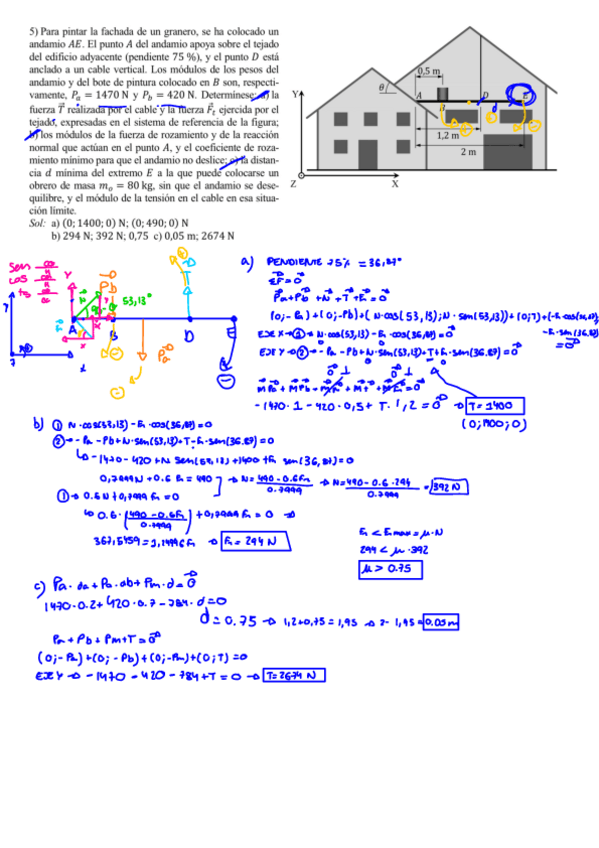 5) Para pintar la fachada de un granero, se ha colocado un
andamio AE. El punto A del andamio apoya sobre el tejado
del edificio adyacente (pendiente 75 %), y el punto D está
anclado a un cable vertical. Los módulos de los pesos del
andamio y del bote de pintura colocado en B son, respecti-
vamente, Pₐ = 1470 N y P_b = 420 N. Determínese: a) la
fuerza T⃗ realizada por el cable y la fuerza F⃗_t ejercida por el
tejado, expresadas en el sistema de referencia de la figura;
b) los módulos de la fuerza de rozamiento y de la reacción
normal que actúan en el punto A, y el coeficiente de roza-
miento mínimo para que el andamio no deslice; c) la distan-
cia d mínima del extremo E a la que puede colocarse un
obrero de masa mₒ = 80 kg, sin que el andamio se dese-
quilibre, y el módulo de la tensión en el cable en esa situa-
ción límite.
Sol: a) (0; 1400; 0) N; (0; 490; 0) N
b) 294 N; 392 N; 0,75 c) 0,05 m; 2674 N
0,5 m
θ
A
D
E
d
Y
1,2 m
2 m
Z
X
sen
cos
Y
Pb
53,13°
A
B
D
E
Pa
a) PENDIENTE 75% = 36,87°
ΣF = 0
Pa + Pb + N + T + Fr = 0
-1470 · 1 - 420 · 0,5 + T · 1,2 = 0 → T = 1400
(0; 1400; 0)
b) ① N · cos(53,13) - Fr · cos(36,87) = 0
② - Pa - Pb + N · sen(53,13) + T + Fr · sen(36.87) = 0
↳ -1470 - 420 + N sen(53,13) + 1400 + Fr sen(36,87) = 0
0,7999 N + 0.6 Fr = 490 → N = 490 - 0.6 Fr / 0.7999 → N = 490 - 0.6 · 294 / 0.7999 = 392 N
↳ 0.6 · (490 - 0.6Fr / 0.7999) + 0,7999 Fr = 0
→ Fr = 294 N
Fr < Frmax = μ · N
294 < μ · 392
μ > 0.75
c) Pa · da + Pb · db + Pm · d = 0
1470 · 0.2 + 420 · 0.7 - 784 · d = 0
d = 0.75 → 1,2 + 0,75 = 1,95 → 2 - 1,95 = 0.05 m
Pa + Pb + Pm + T = 0
(0; -Pa) + (0; -Pb) + (0; -Pm) + (0; T) = 0
EJE Y → -1470 - 420 - 784 + T = 0 → T = 2674 N